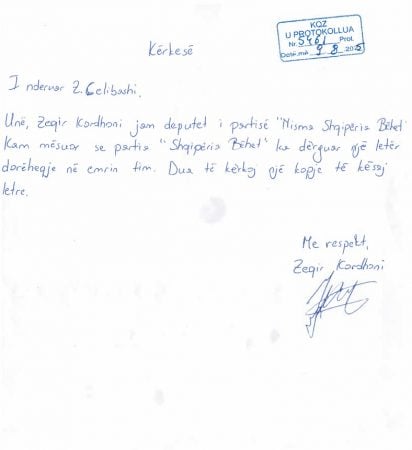 Kërkesë
KQZ
U PROTOKOLLUA
Nr. 5461 Prot.
Datë.më 9 8 2025
I nderuar Z. Celibashi,
Unë, Zeqir Kordhoni jam deputet i partisë "Nisma Shqipëria Bëhet"
Kam mësuar se partia "Shqipëria Bëhet" ka dërguar një letër
dorëheqje në emrin tim. Dua të kërkoj një kopje të kësaj
letre.
Me respekt,
Zeqir Kordhoni